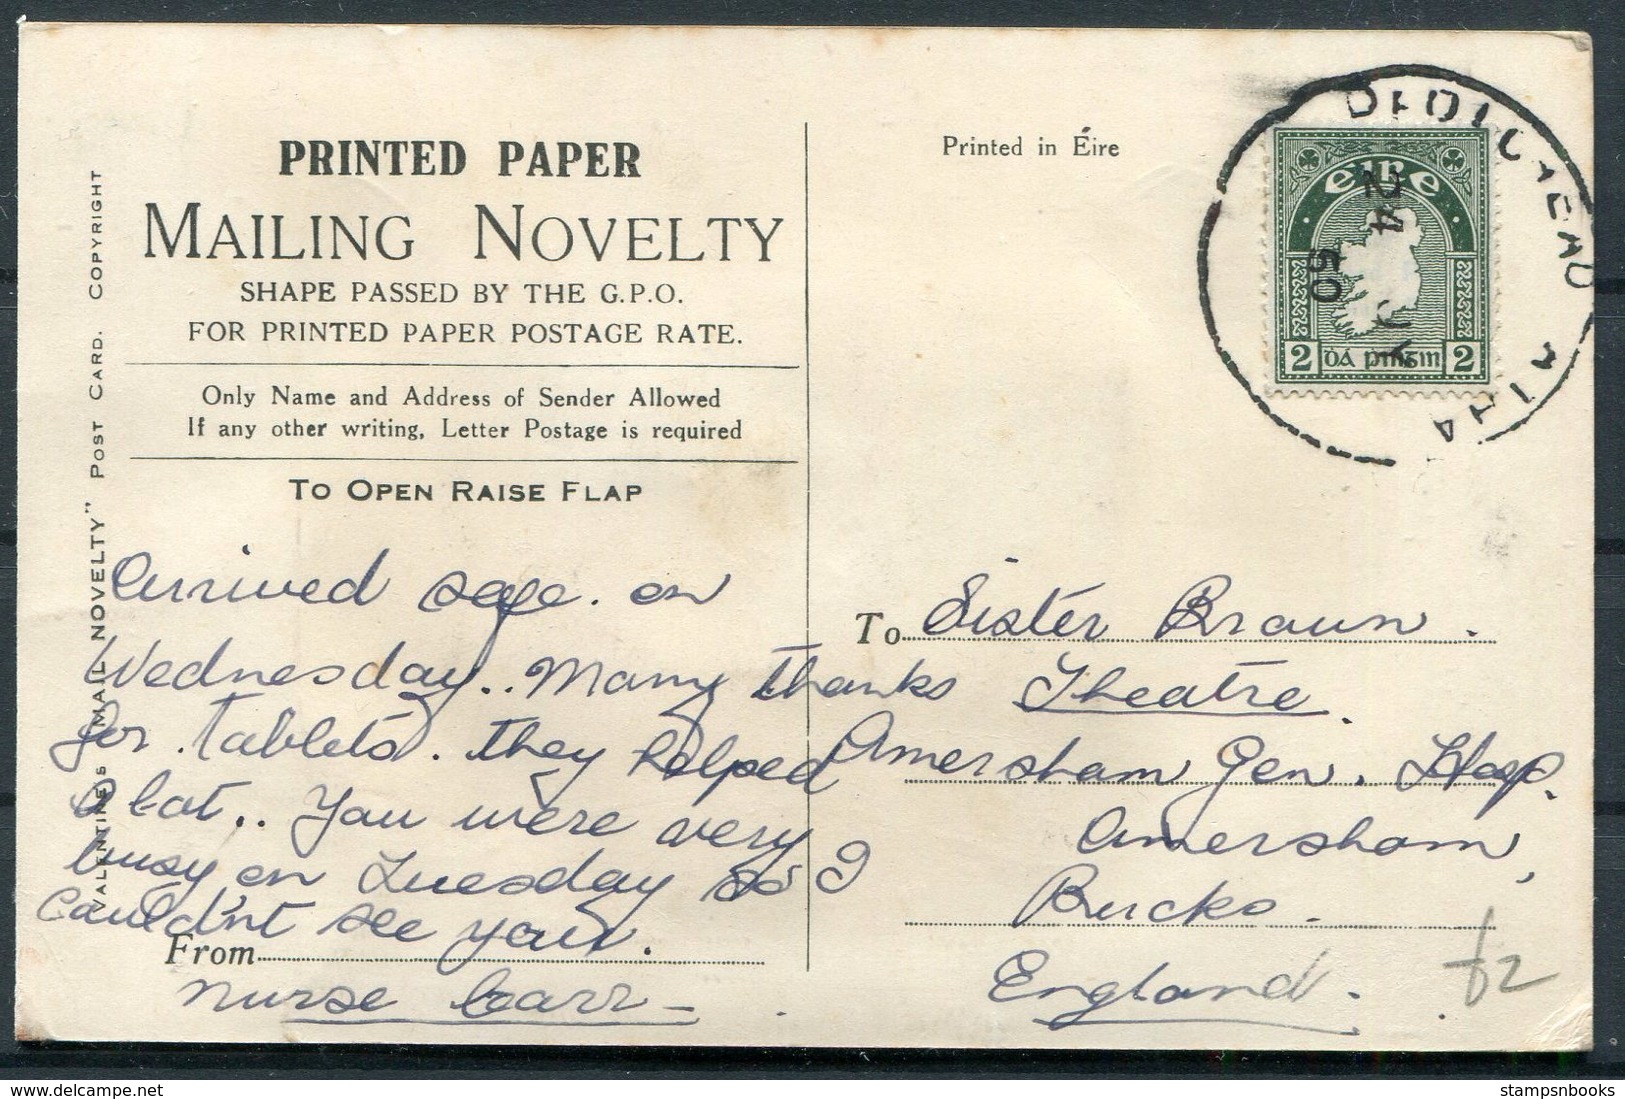 PRINTED PAPER
MAILING NOVELTY
SHAPE PASSED BY THE G.P.O.
FOR PRINTED PAPER POSTAGE RATE.
Only Name and Address of Sender Allowed
If any other writing, Letter Postage is required
TO OPEN RAISE FLAP
VALENTINES "MAIL NOVELTY" POST CARD. COPYRIGHT
Arrived safe. on
Wednesday.. Many thanks
for tablets. they helped
a lot.. You were very
busy on Tuesday so I
couldn't see you.
From
Nurse Carr
Printed in Éire
éire
2 dá pinginn 2
24
50
To Sister Braun.
Theatre.
Amersham Gen. Hosp.
Amersham,
Bucks.
England.
£2
stampsnbooks